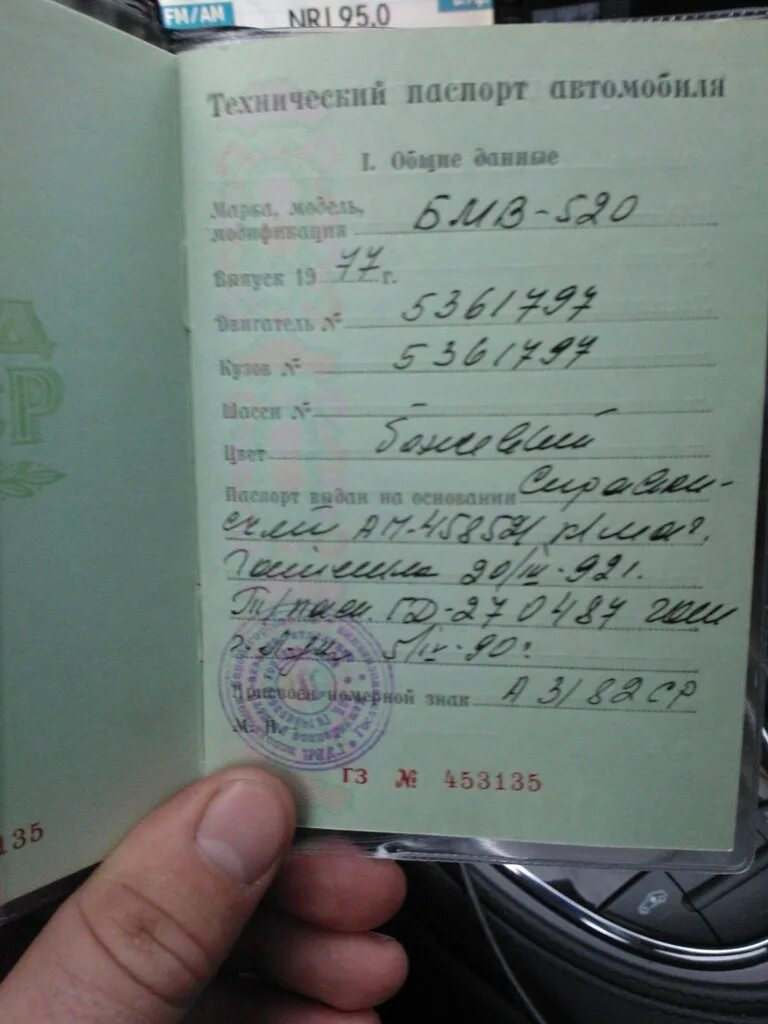 FM/AM
NRJ 95.0
Технический паспорт автомобиля
I. Общие данные
Марка, модель,
модификация БМВ-520
Выпуск 19 77 г.
Двигатель № 5361797
Кузов № 5361797
Шасси № —
Цвет бежевый
Паспорт выдан на основании Справки-
счёт
20/III-92г.
ГД-270487
5/IX-90г
Присвоен номерной знак А 3182 СР
М. П.
ГЗ № 453135
А
СР
135